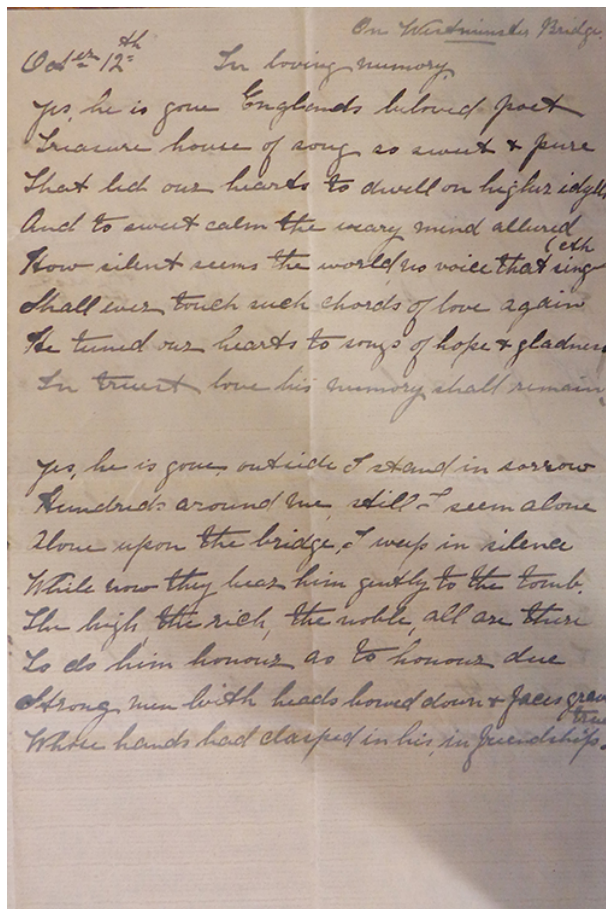 On Westminster Bridge.
Octer 12th
In loving memory
Yes, he is gone Englands beloved poet
Treasure house of song so sweet & pure
That led our hearts to dwell on higher idylls
And to sweet calm the weary mind allured
How silent seems the world, no voice that singeth
Shall ever touch such chords of love again
He tuned our hearts to songs of hope & gladness
In truest love his memory shall remain,
Yes, he is gone, outside I stand in sorrow
Hundreds around me, still I seem alone
Alone upon the bridge, I weep in silence
While now they bear him gently to the tomb.
The high, the rich, the noble, all are there
To do him honour as to honour due
Strong men with heads bowed down & faces grave
Whose hands had clasped in his, in friendship true